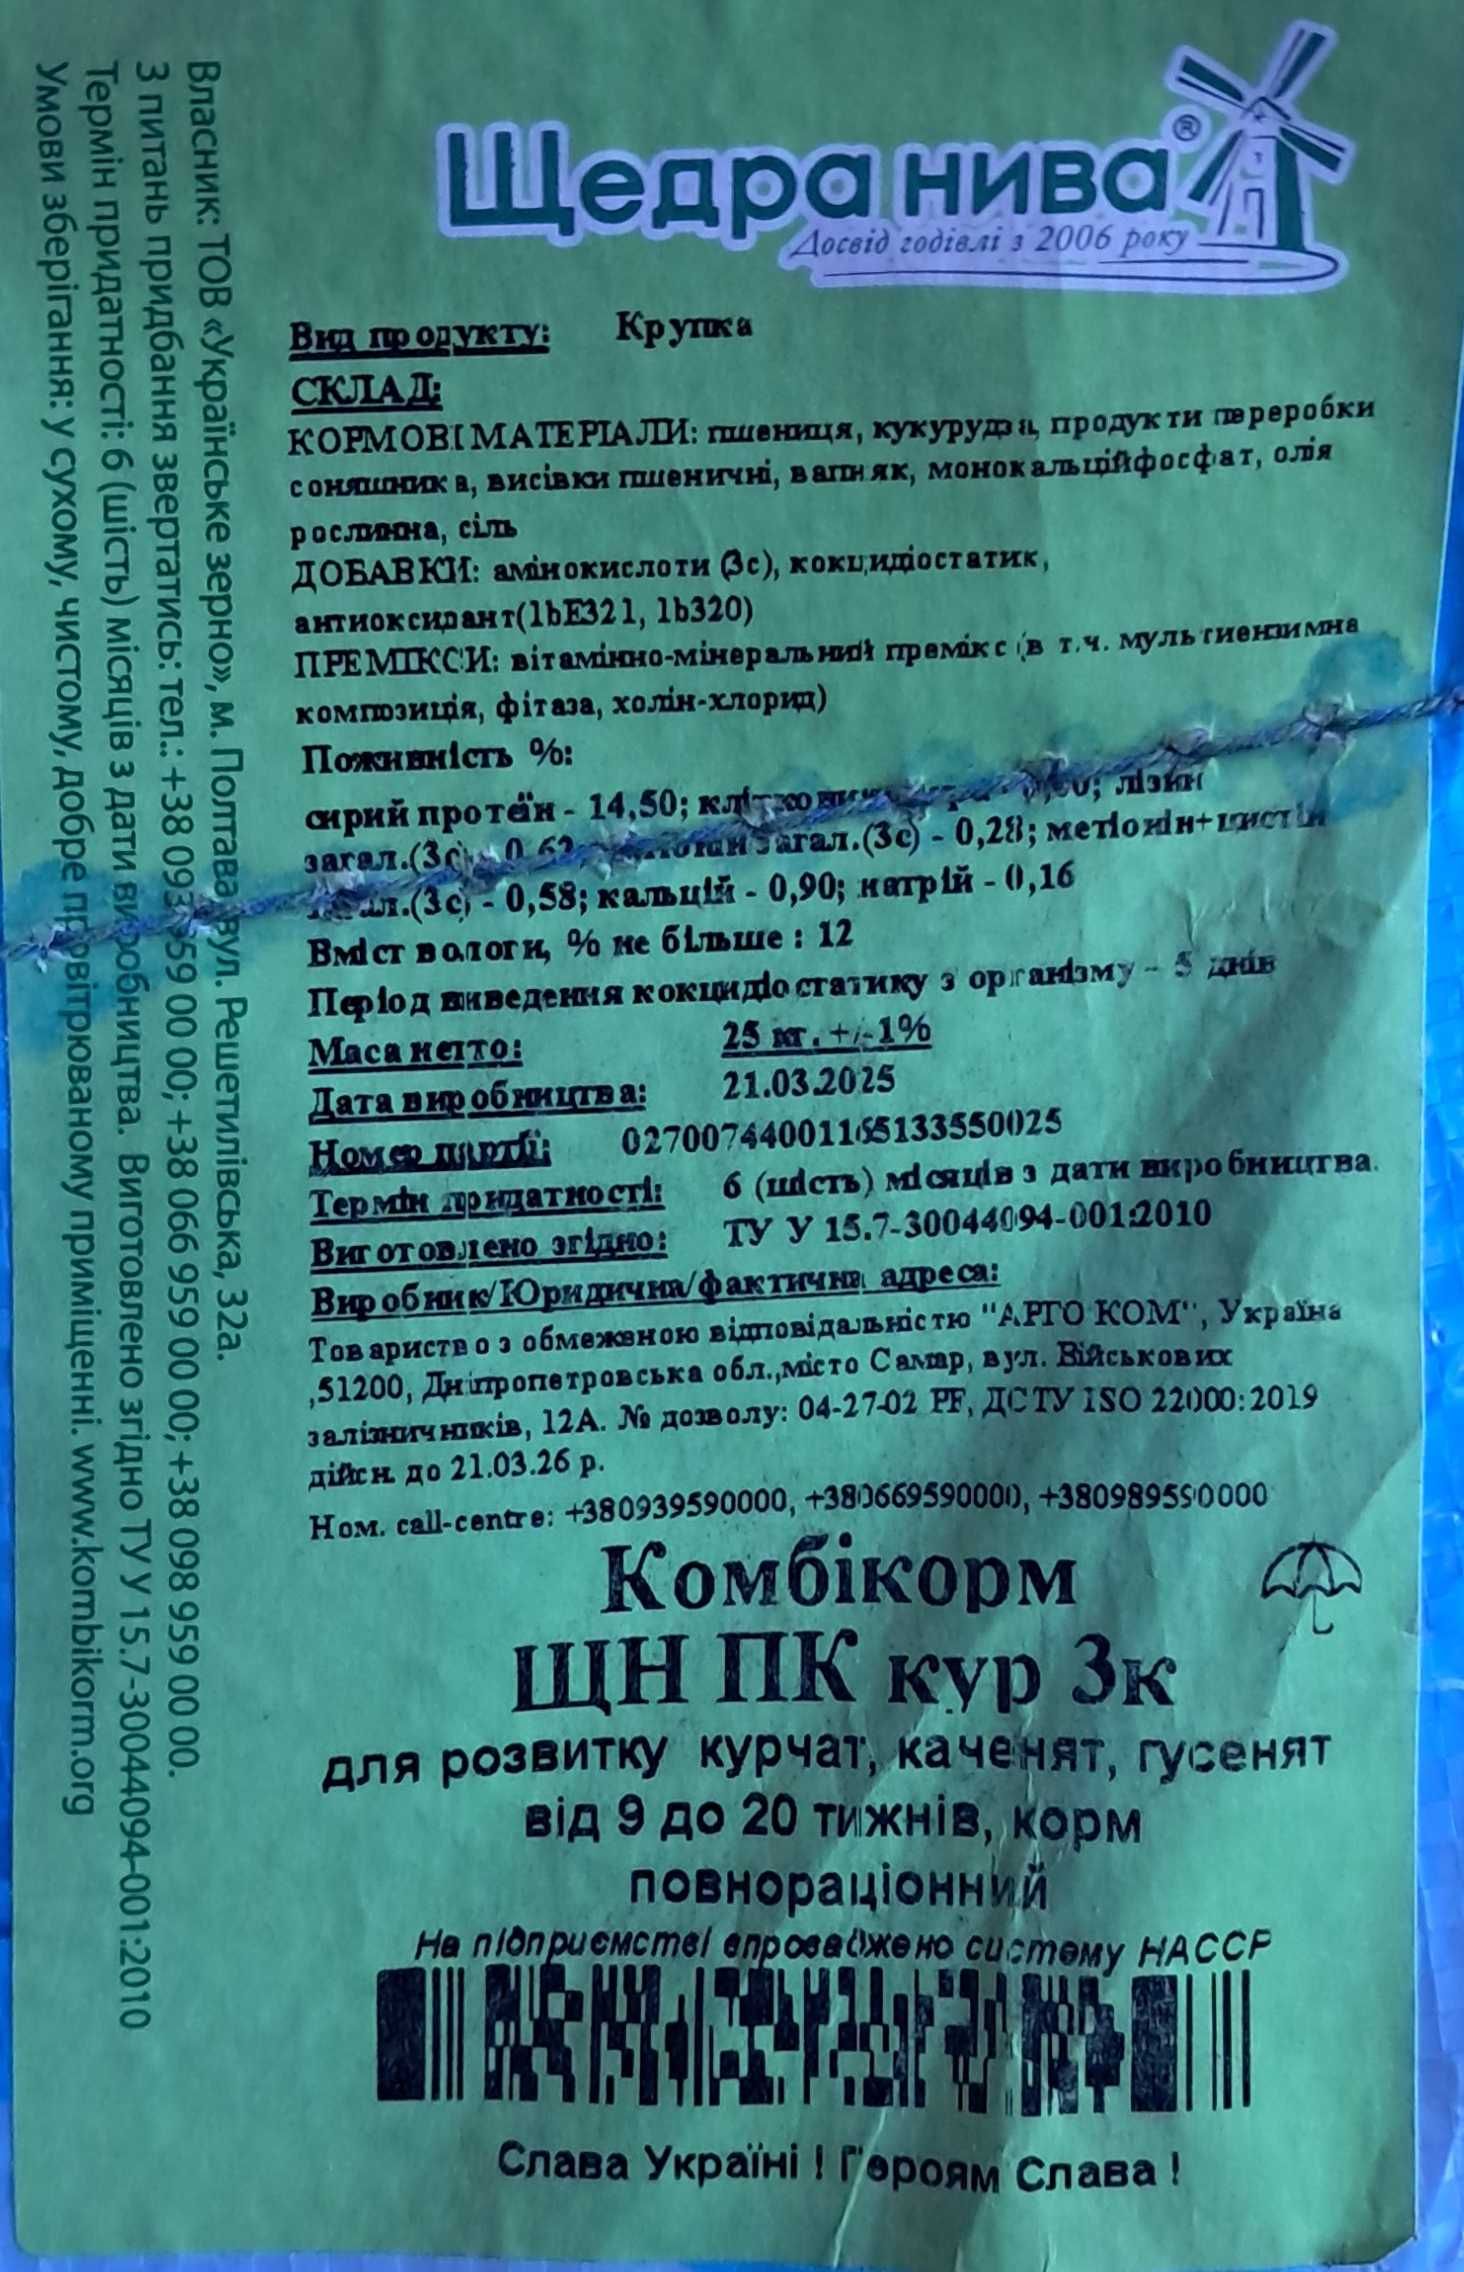 Щедра нива®
Досвід годівлі з 2006 року
Вид продукту: Крупка
СКЛАД:
КОРМОВІ МАТЕРІАЛИ: пшениця, кукурудза, продукти переробки
соняшника, висівки пшеничні, вапняк, монокальційфосфат, олія
рослинна, сіль
ДОБАВКИ: амінокислоти (3c), кокцидіостатик,
антиоксидант(1bE321, 1b320)
ПРЕМІКСИ: вітамінно-мінеральний премікс (в т.ч. мультиензимна
композиція, фітаза, холін-хлорид)
Поживність %:
сирий протеїн - 14,50; лізин
загал.(3c) - загал.(3c) - 0,28; метіонін+цистін
загал.(3c) - 0,58; кальцій - 0,90; натрій - 0,16
Вміст вологи, % не більше : 12
Період виведення кокцидіостатику з організму - 5 днів
Маса нетто: 25 кг. +/-1%
Дата виробництва: 21.03.2025
Номер партії: 02700744001165133550025
Термін придатності: 6 (шість) місяців з дати виробництва.
Виготовлено згідно: ТУ У 15.7-30044094-001:2010
Виробник/Юридична/фактична адреса:
Товариство з обмеженою відповідальністю "АРГО КОМ", Україна
,51200, Дніпропетровська обл.,місто Самар, вул. Військових
залізничників, 12А. № дозволу: 04-27-02 PF, ДСТУ ISO 22000:2019
дійсн. до 21.03.26 р.
Ном. call-centre: +380939590000, +380669590000, +380989590000
Комбікорм
ЩН ПК кур 3к
для розвитку курчат, каченят, гусенят
від 9 до 20 тижнів, корм
повнораціонний
На підприємстві впроваджено систему НАССР
Слава Україні ! Героям Слава !
Власник: ТОВ «Українське зерно», м. Полтава, вул. Решетилівська, 32а.
З питань придбання звертатись: тел.: +38 093 959 00 00; +38 066 959 00 00; +38 098 959 00 00.
Термін придатності: 6 (шість) місяців з дати виробництва. Виготовлено згідно ТУ У 15.7-30044094-001:2010
Умови зберігання: у сухому, чистому, добре провітрюваному приміщенні. www.kombikorm.org